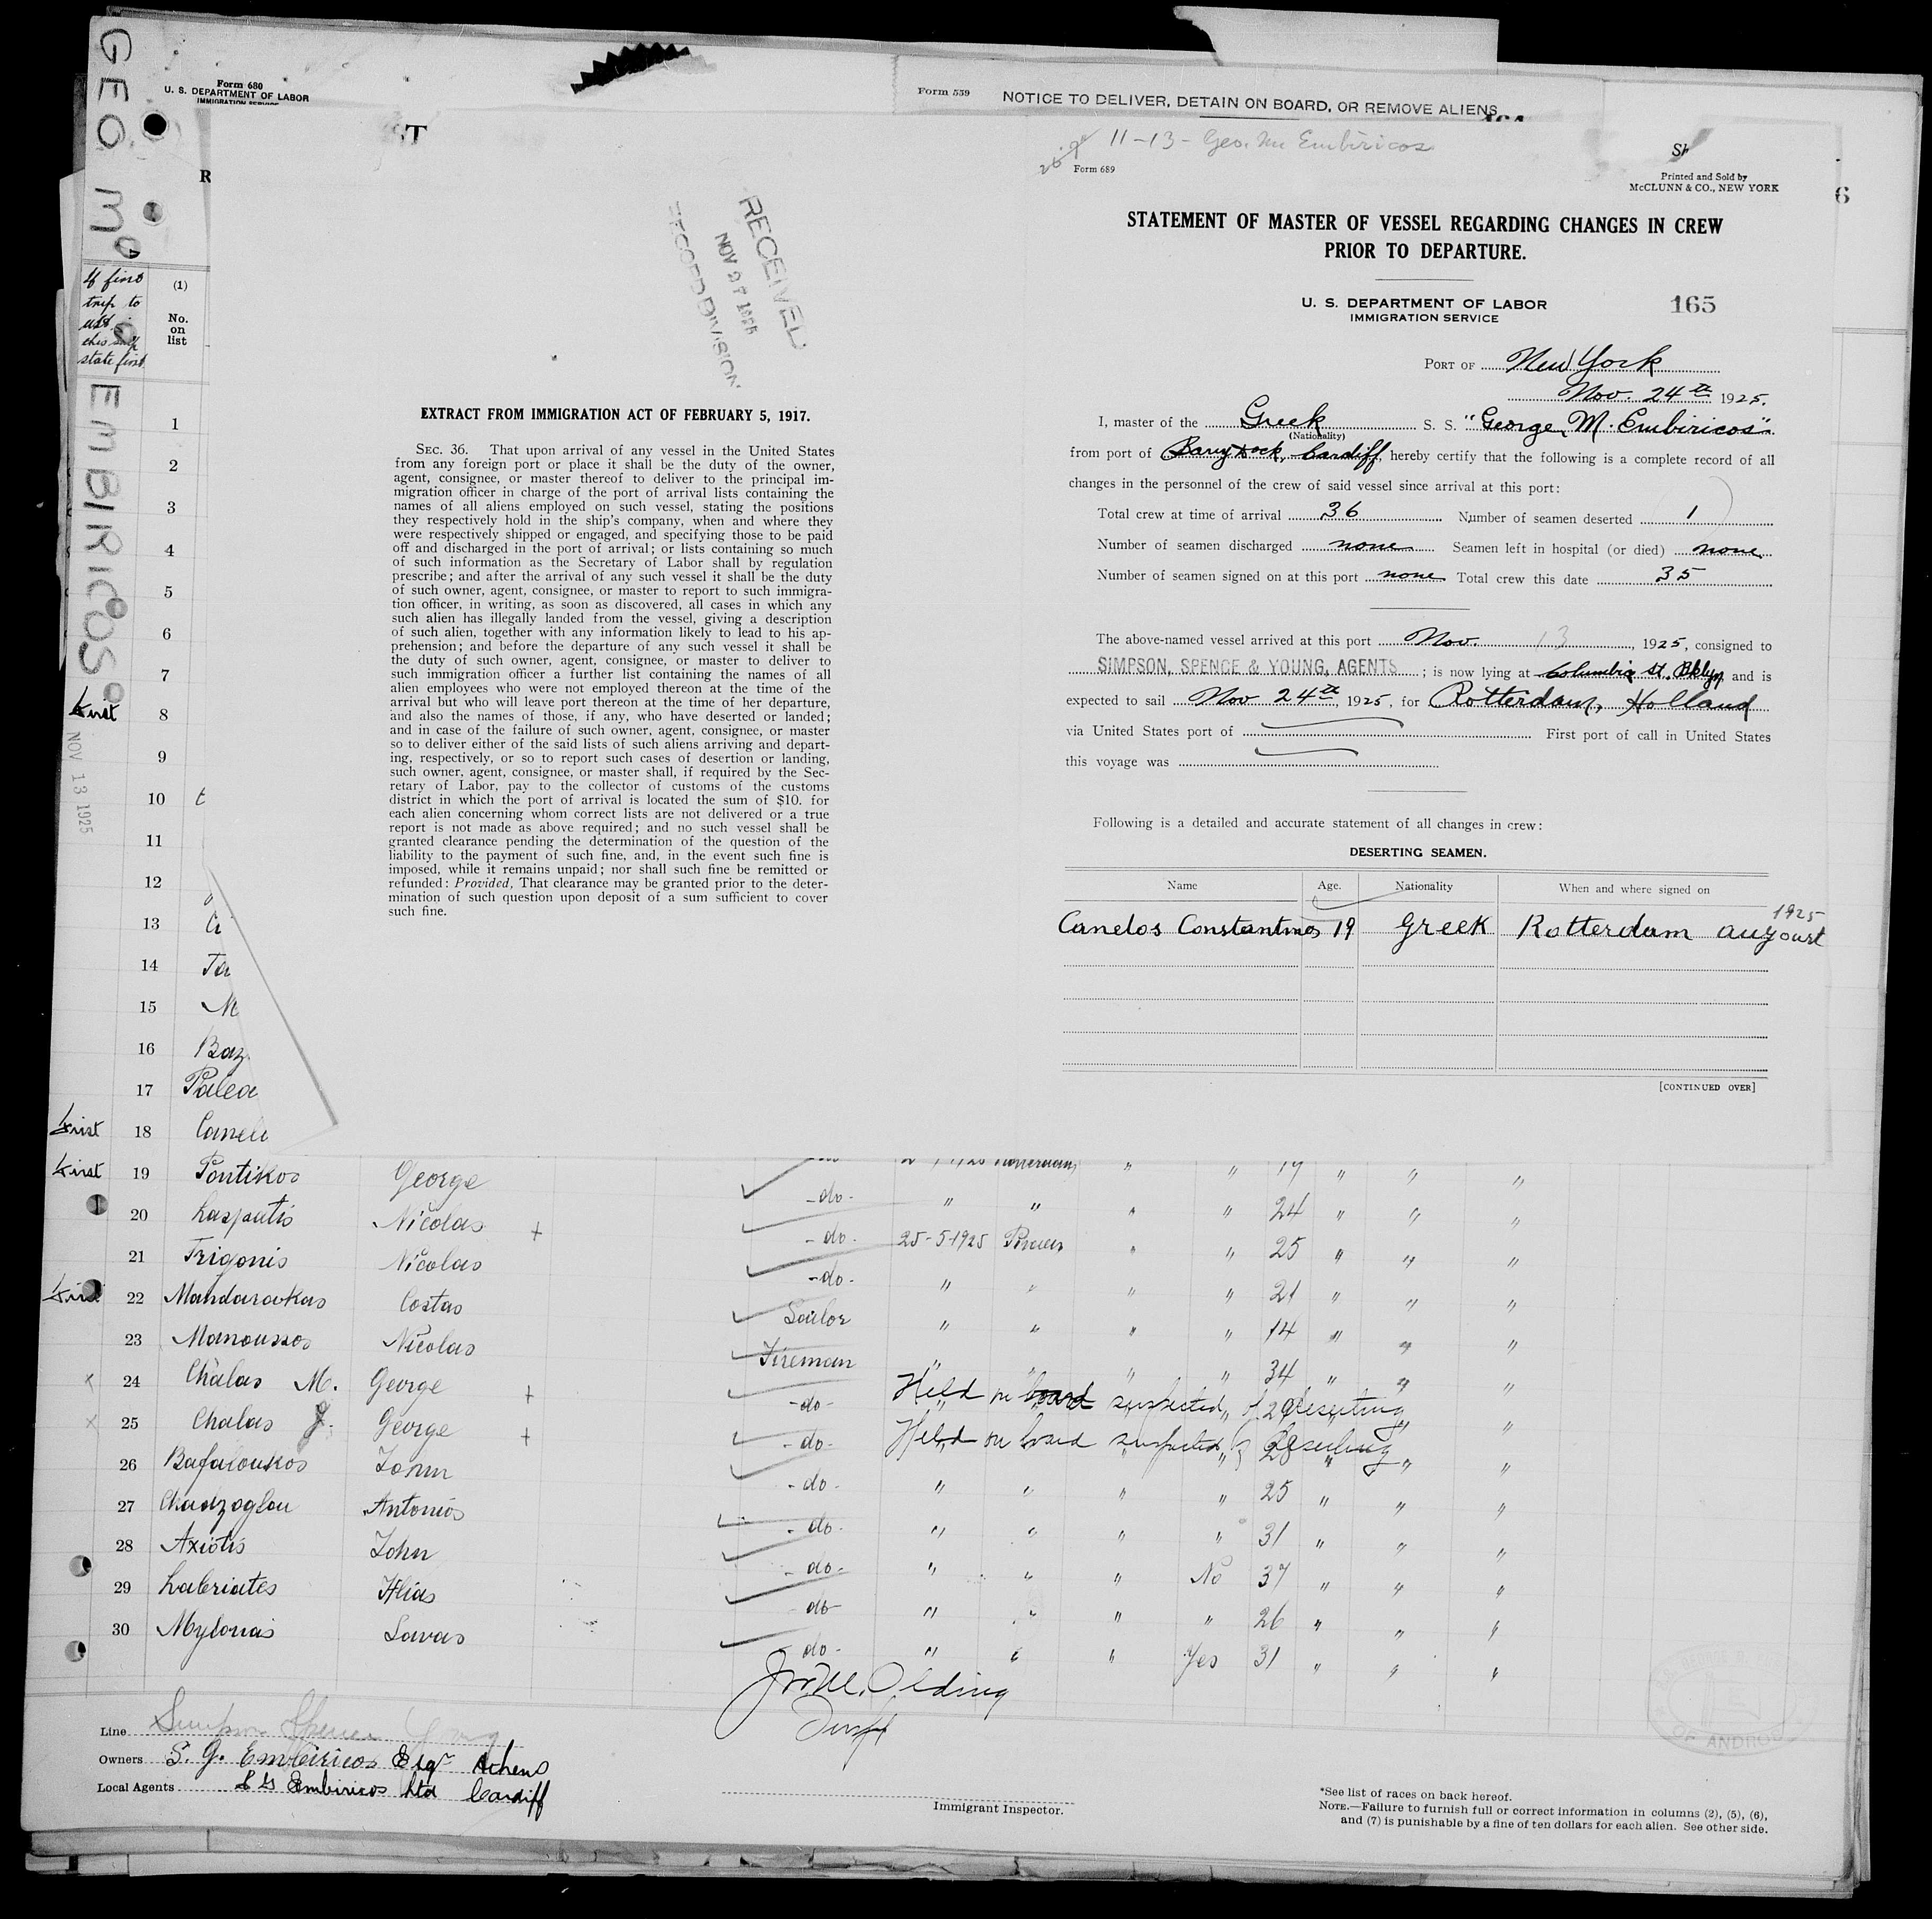 GEO M. EMBIRICOS
Form 680
U. S. DEPARTMENT OF LABOR
IMMIGRATION SERVICE
Form 559
NOTICE TO DELIVER, DETAIN ON BOARD, OR REMOVE ALIENS
ST
R
6
If first
trip to
this
state first
(1)
No.
on
list
RECEIVED
NOV 27 1925
RECORD DIVISION
EXTRACT FROM IMMIGRATION ACT OF FEBRUARY 5, 1917.
SEC. 36. That upon arrival of any vessel in the United States
from any foreign port or place it shall be the duty of the owner,
agent, consignee, or master thereof to deliver to the principal im-
migration officer in charge of the port of arrival lists containing the
names of all aliens employed on such vessel, stating the positions
they respectively hold in the ship's company, when and where they
were respectively shipped or engaged, and specifying those to be paid
off and discharged in the port of arrival; or lists containing so much
of such information as the Secretary of Labor shall by regulation
prescribe; and after the arrival of any such vessel it shall be the duty
of such owner, agent, consignee, or master to report to such immigra-
tion officer, in writing, as soon as discovered, all cases in which any
such alien has illegally landed from the vessel, giving a description
of such alien, together with any information likely to lead to his ap-
prehension; and before the departure of any such vessel it shall be
the duty of such owner, agent, consignee, or master to deliver to
such immigration officer a further list containing the names of all
alien employees who were not employed thereon at the time of the
arrival but who will leave port thereon at the time of her departure,
and also the names of those, if any, who have deserted or landed;
and in case of the failure of such owner, agent, consignee, or master
so to deliver either of the said lists of such aliens arriving and depart-
ing, respectively, or so to report such cases of desertion or landing,
such owner, agent, consignee, or master shall, if required by the Sec-
retary of Labor, pay to the collector of customs of the customs
district in which the port of arrival is located the sum of $10. for
each alien concerning whom correct lists are not delivered or a true
report is not made as above required; and no such vessel shall be
granted clearance pending the determination of the question of the
liability to the payment of such fine, and, in the event such fine is
imposed, while it remains unpaid; nor shall such fine be remitted or
refunded: Provided, That clearance may be granted prior to the deter-
mination of such question upon deposit of a sum sufficient to cover
such fine.
11-13- Geo. M Embiricos
Form 689
Printed and Sold by
McCLUNN & CO., NEW YORK
STATEMENT OF MASTER OF VESSEL REGARDING CHANGES IN CREW
PRIOR TO DEPARTURE.
U. S. DEPARTMENT OF LABOR
IMMIGRATION SERVICE
165
PORT OF New York
Nov. 24th 1925.
I, master of the Greek S. S. "George M. Embiricos"
(Nationality)
from port of Barry Dock, Cardiff, hereby certify that the following is a complete record of all
changes in the personnel of the crew of said vessel since arrival at this port:
Total crew at time of arrival 36 Number of seamen deserted 1
Number of seamen discharged none Seamen left in hospital (or died) none
Number of seamen signed on at this port none Total crew this date 35
The above-named vessel arrived at this port Nov. 13, 1925, consigned to
SIMPSON, SPENCE & YOUNG, AGENTS; is now lying at Columbia St. Bklyn and is
expected to sail Nov 24th, 1925, for Rotterdam, Holland
via United States port of First port of call in United States
this voyage was
Following is a detailed and accurate statement of all changes in crew:
DESERTING SEAMEN.
Name Age. Nationality When and where signed on
Canelos Constantinos 19 Greek Rotterdam August 1925
[CONTINUED OVER]
1
2
3
4
5
6
7
first 8
NOV 13 1925
9
10
11
12
13
14 Ta
15 M
16 Baz
17 Palea
first 18 Canel
first 19 Pontikos George -do- 19 " " "
20 Laspatis Nicolas + -do- " " " " 24 " " "
21 Trigonis Nicolas -do- 25-5-1925 " " 25 " " "
first 22 Mandarovkas Costas -do- " " " " 21 " " "
23 Manoussos Nicolas Sailor " " " " 14 " " "
x 24 Chalas M. George + Fireman " " " " 34 " " "
x 25 Chalas J. George + -do- Held on board suspected of deserting
26 Bafaloukos John -do- Held on board suspected of deserting
27 Chadzoglou Antonios -do- " " " " 25 " " "
28 Axiotis John -do- " " " " 31 " " "
29 Labriates Ilias -do- " " " No 37 " " "
30 Mylonas Savas -do- " " " " 26 " " "
-do- " " " Yes 31 " " "
Olding
Line Simpson Spence Young
Owners S. G. Embiricos Esqr Athens
Local Agents S G Embiricos Ltd Cardiff
Immigrant Inspector.
OF ANDROS
*See list of races on back hereof.
NOTE.—Failure to furnish full or correct information in columns (2), (5), (6),
and (7) is punishable by a fine of ten dollars for each alien. See other side.